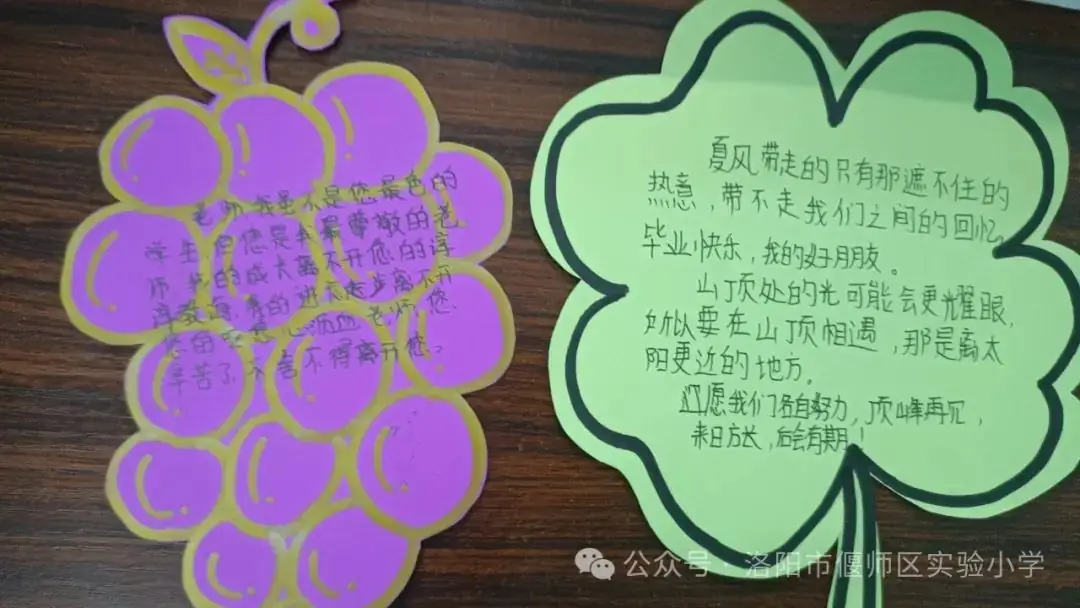 老师我虽不是您最出色的
学生,但您是我最尊敬的老
师.我的成长离不开您的谆
谆教诲,我的进步离不开
您的 心沥血,老师,您
辛苦了,不舍不得离开您。
夏风带走的只有那遮不住的
热意,带不走我们之间的回忆。
毕业快乐,我的好朋友。
山顶处的光可能会更耀眼,
所以要在山顶相遇,那是离太
阳更近的地方。
愿我们各自努力,顶峰再见,
来日方长,后会有期!
公众号·洛阳市偃师区实验小学